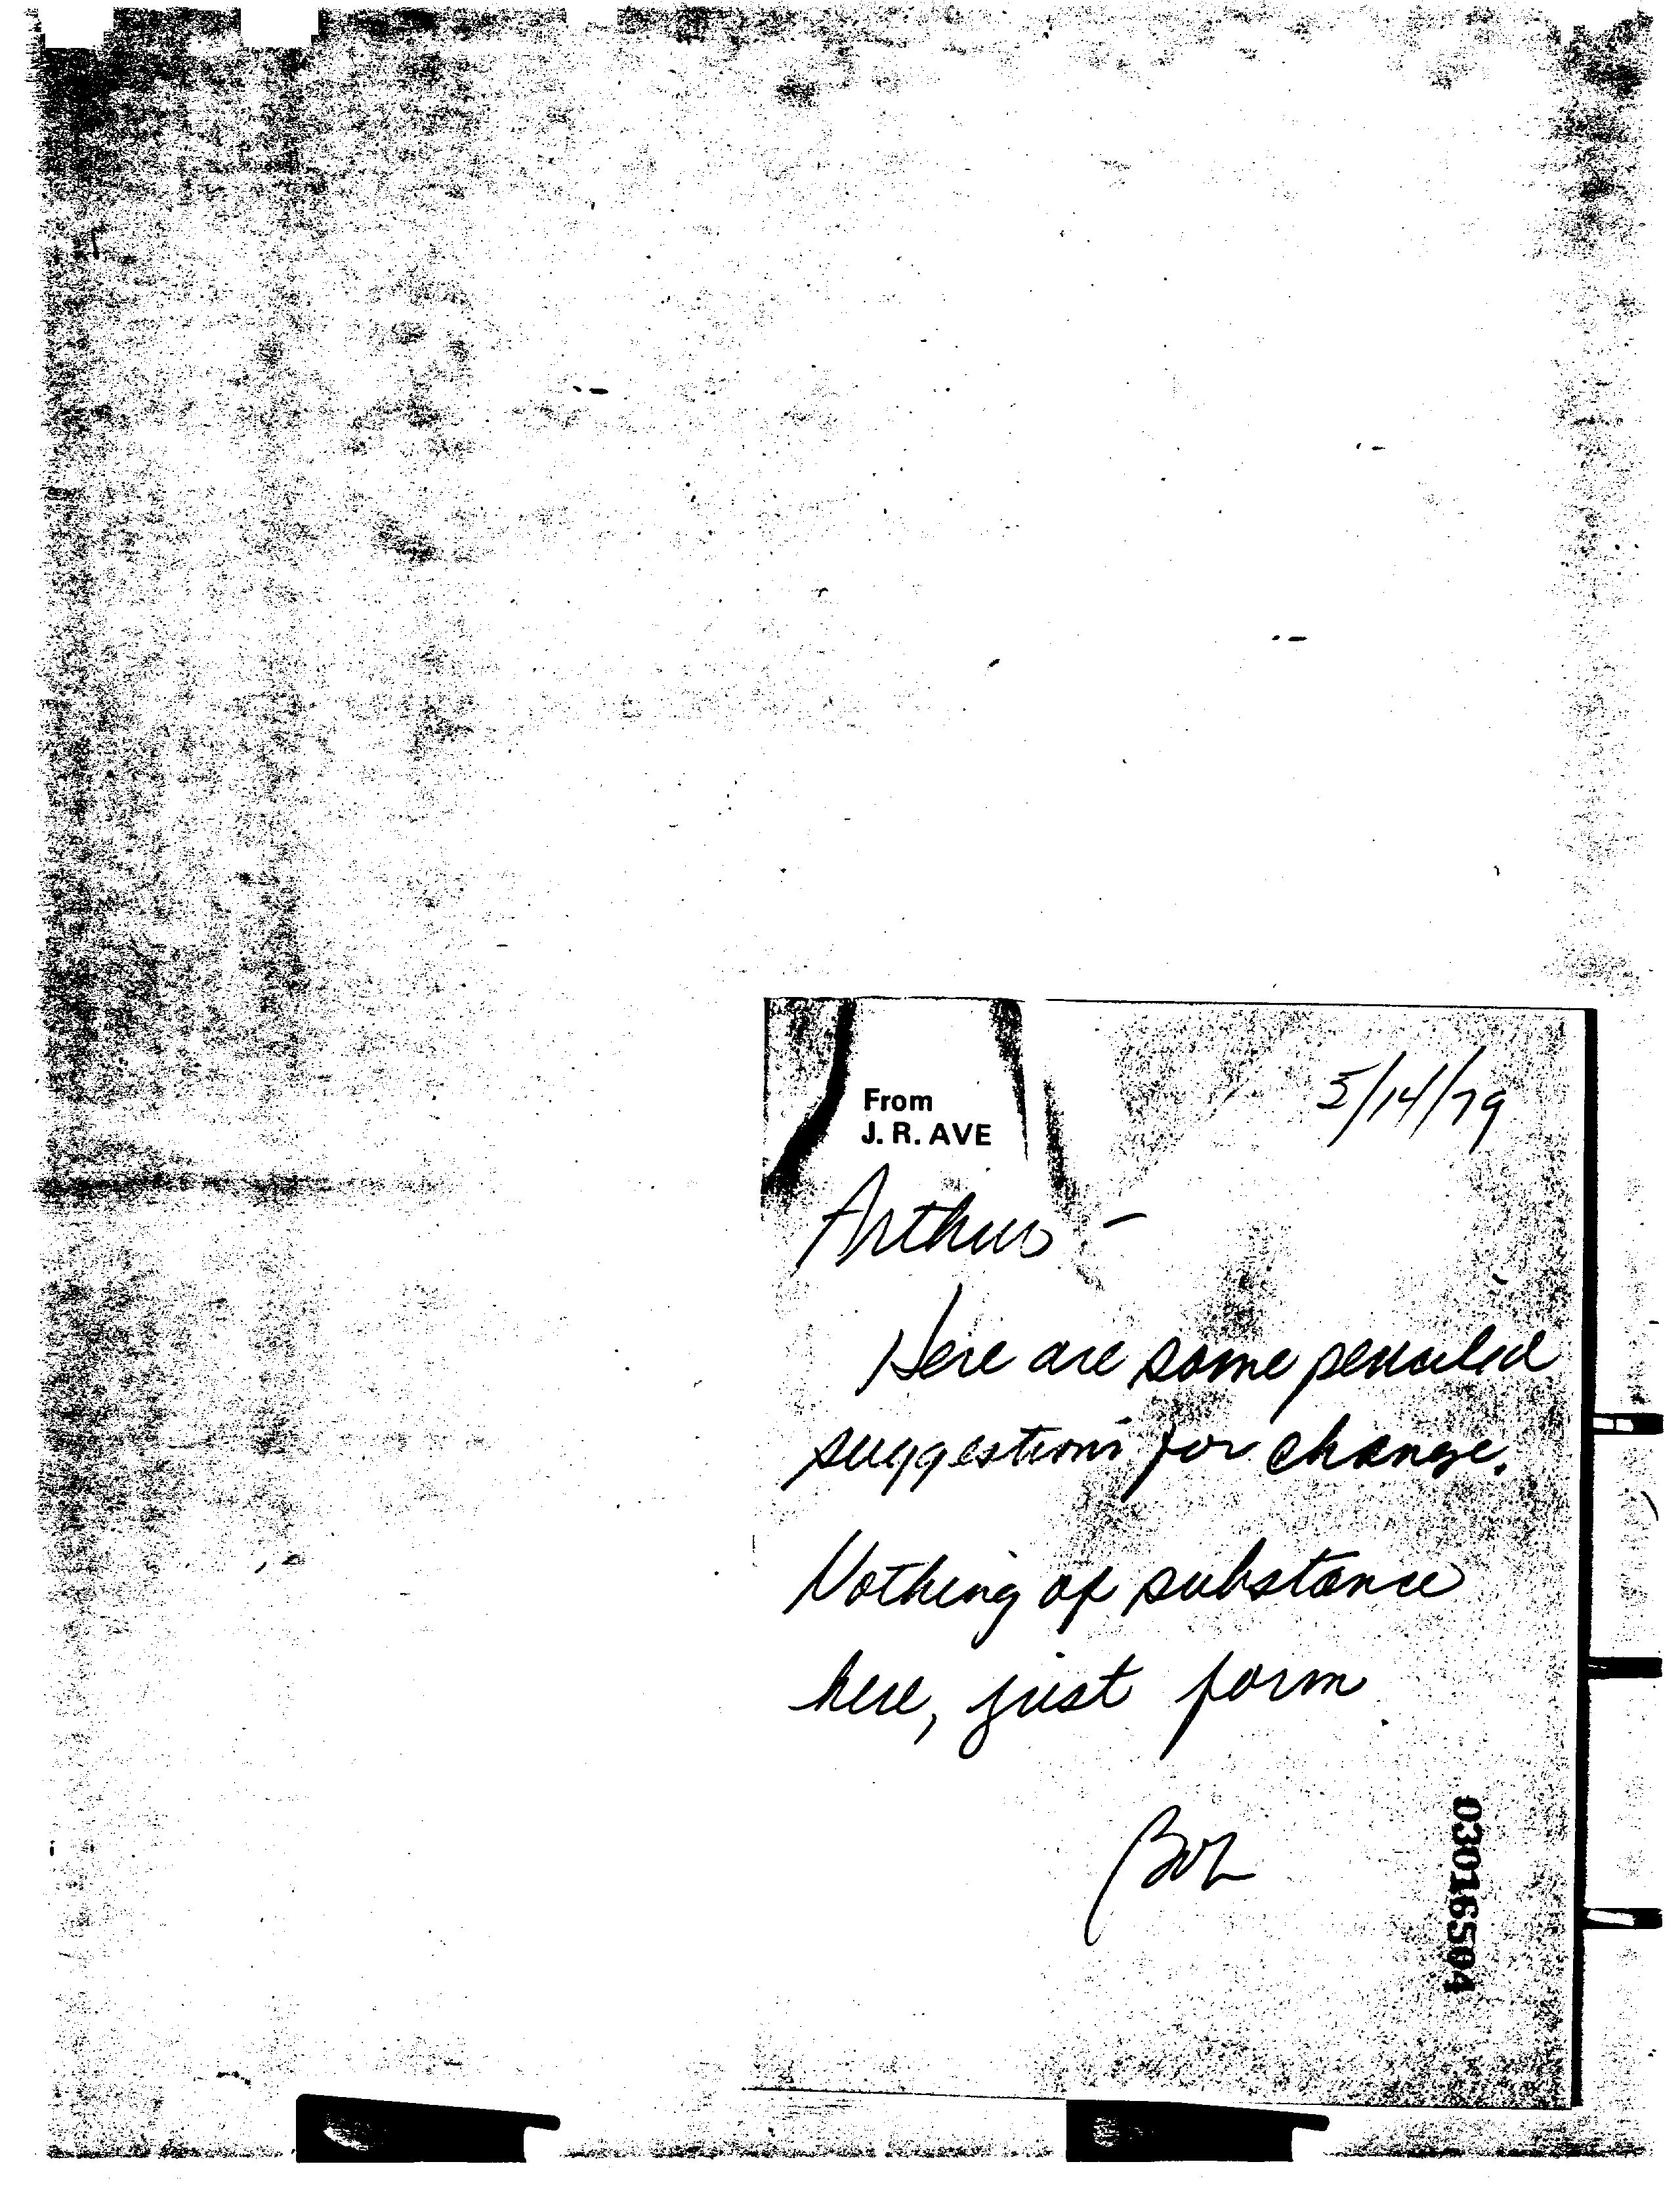 From
J. R. AVE
5/14/79
Arthur -
Here are some penciled
suggestions for change.
Nothing of substance
here, just form
Bob
03016504